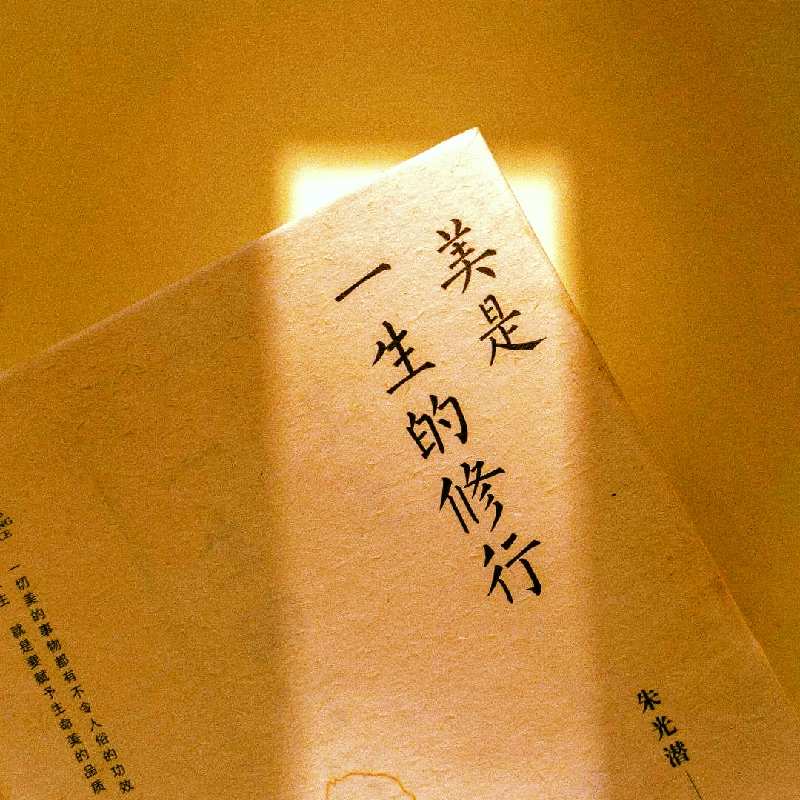 美是
一生的修行
朱光潜
一切美的事物都有不令人俗的功效
就是要赋予生命美的品质